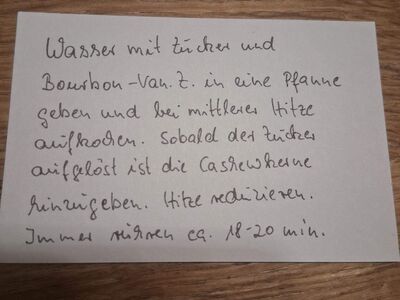 Wasser mit Zucker und
Bourbon-Van.Z. in eine Pfanne
geben und bei mittlerer Hitze
aufkochen. Sobald der Zucker
aufgelöst ist die Cashewkerne
hinzugeben. Hitze reduzieren.
Immer rühren ca. 18-20 min.